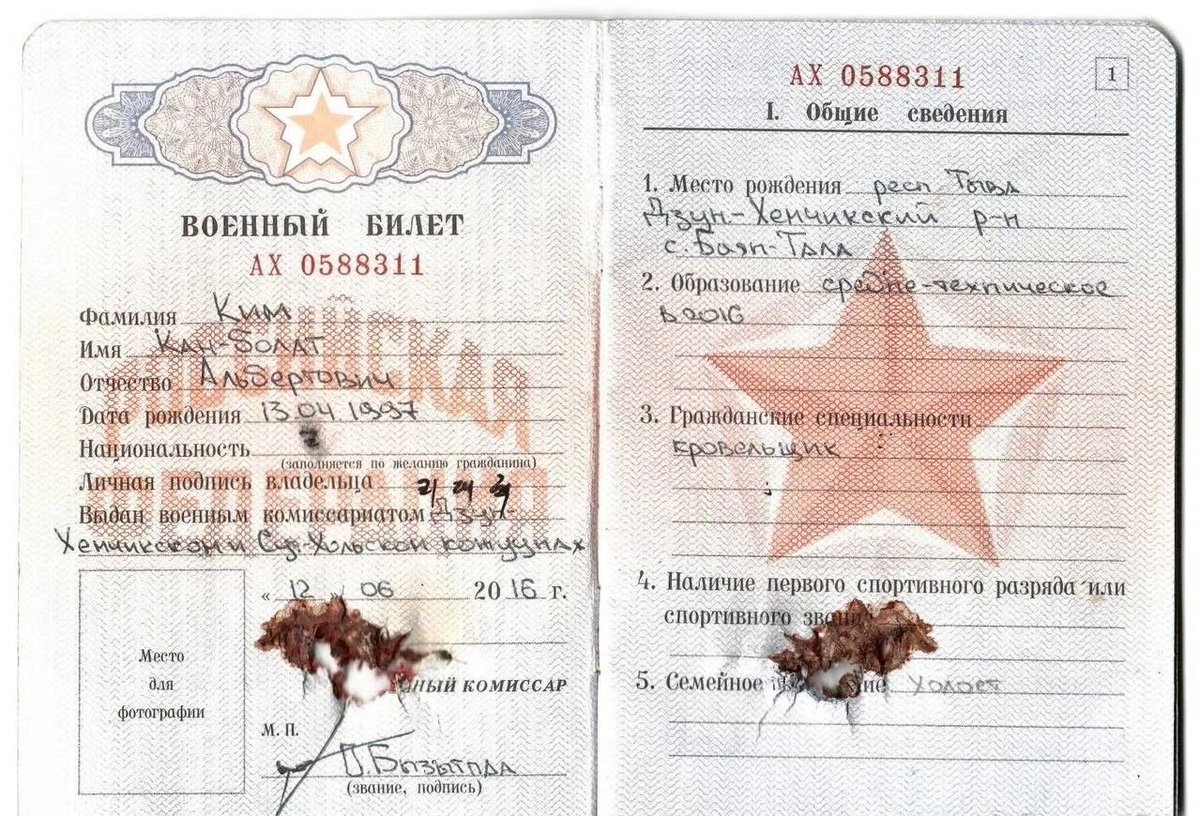 ВОЕННЫЙ БИЛЕТ
АХ 0588311
Фамилия Ким
Имя Кан-Болат
Отчество Альбертович
Дата рождения 13.04.1997
Национальность
(заполняется по желанию гражданина)
Личная подпись владельца
Выдан военным комиссариатом Дзун-
Хемчикском и Суг-Хольском кожуунах
« 12 » 06 20 16 г.
КОМИССАР
Место
для
фотографии
М. П.
(звание, подпись)
АХ 0588311
1
I. Общие сведения
1. Место рождения респ Тыва
Дзун-Хемчикский р-н
с. Баян-Тала
2. Образование средне-техническое
в 2016
3. Гражданские специальности
кровельщик
4. Наличие первого спортивного разряда или
спортивного
5. Семейное холост